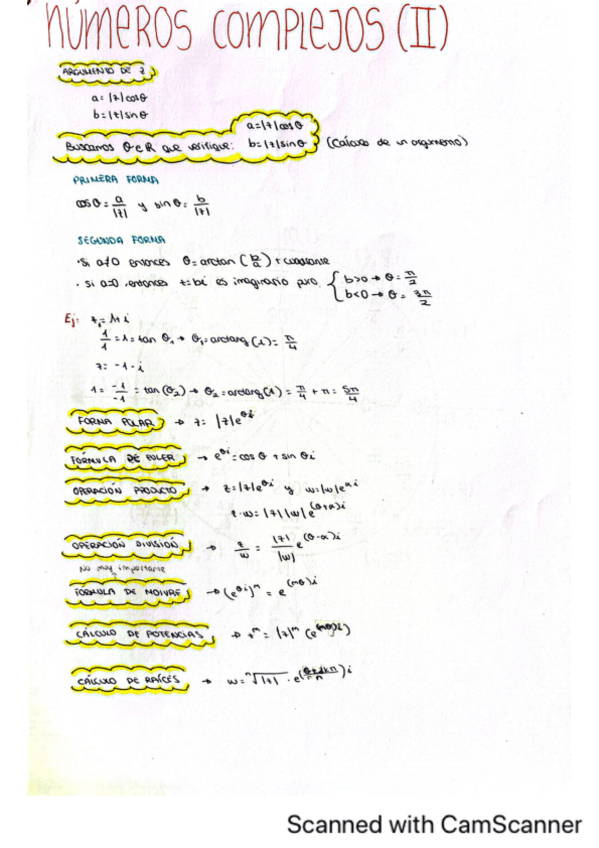 NÚMEROS COMPLEJOS (II)
ARGUMENTO DE z
a = |z| cosθ
b = |z| sinθ
a = |z| cosθ
Buscamos θ∈R que verifique: b = |z| sinθ (Cálculo de un argumento)
PRIMERA FORMA
cosθ = a/|z| y sinθ = b/|z|
SEGUNDA FORMA
· Si a≠0 entonces θ = arctan (b/a) + cuadrante
· Si a=0, entonces z = bi es imaginario puro. { b>0 → θ = π/2
b<0 → θ = 3π/2
Ej: z₁ = 1+i
1/1 = 1 = tan θ₁ → θ₁ = arctang (1) = π/4
z = -1-i
1 = -1/-1 = tan (θ₂) → θ₂ = arctang (1) = π/4 + π = 5π/4
FORMA POLAR → z = |z|e^θi
FÓRMULA DE EULER → e^θi = cos θ + sin θi
OPERACIÓN PRODUCTO → z = |z|e^θi y w = |w|e^αi
z·w = |z| |w| e^(θ+α)i
OPERACIÓN DIVISIÓN → z/w = |z|/|w| e^(θ-α)i
No muy importante
FÓRMULA DE MOIVRE → (e^θi)^n = e^(nθ)i
CÁLCULO DE POTENCIAS → z^n = |z|^n (e^(nθ)i)
CÁLCULO DE RAÍCES → w = ⁿ√|z| · e^(θ+2kπ/n)i
Scanned with CamScanner